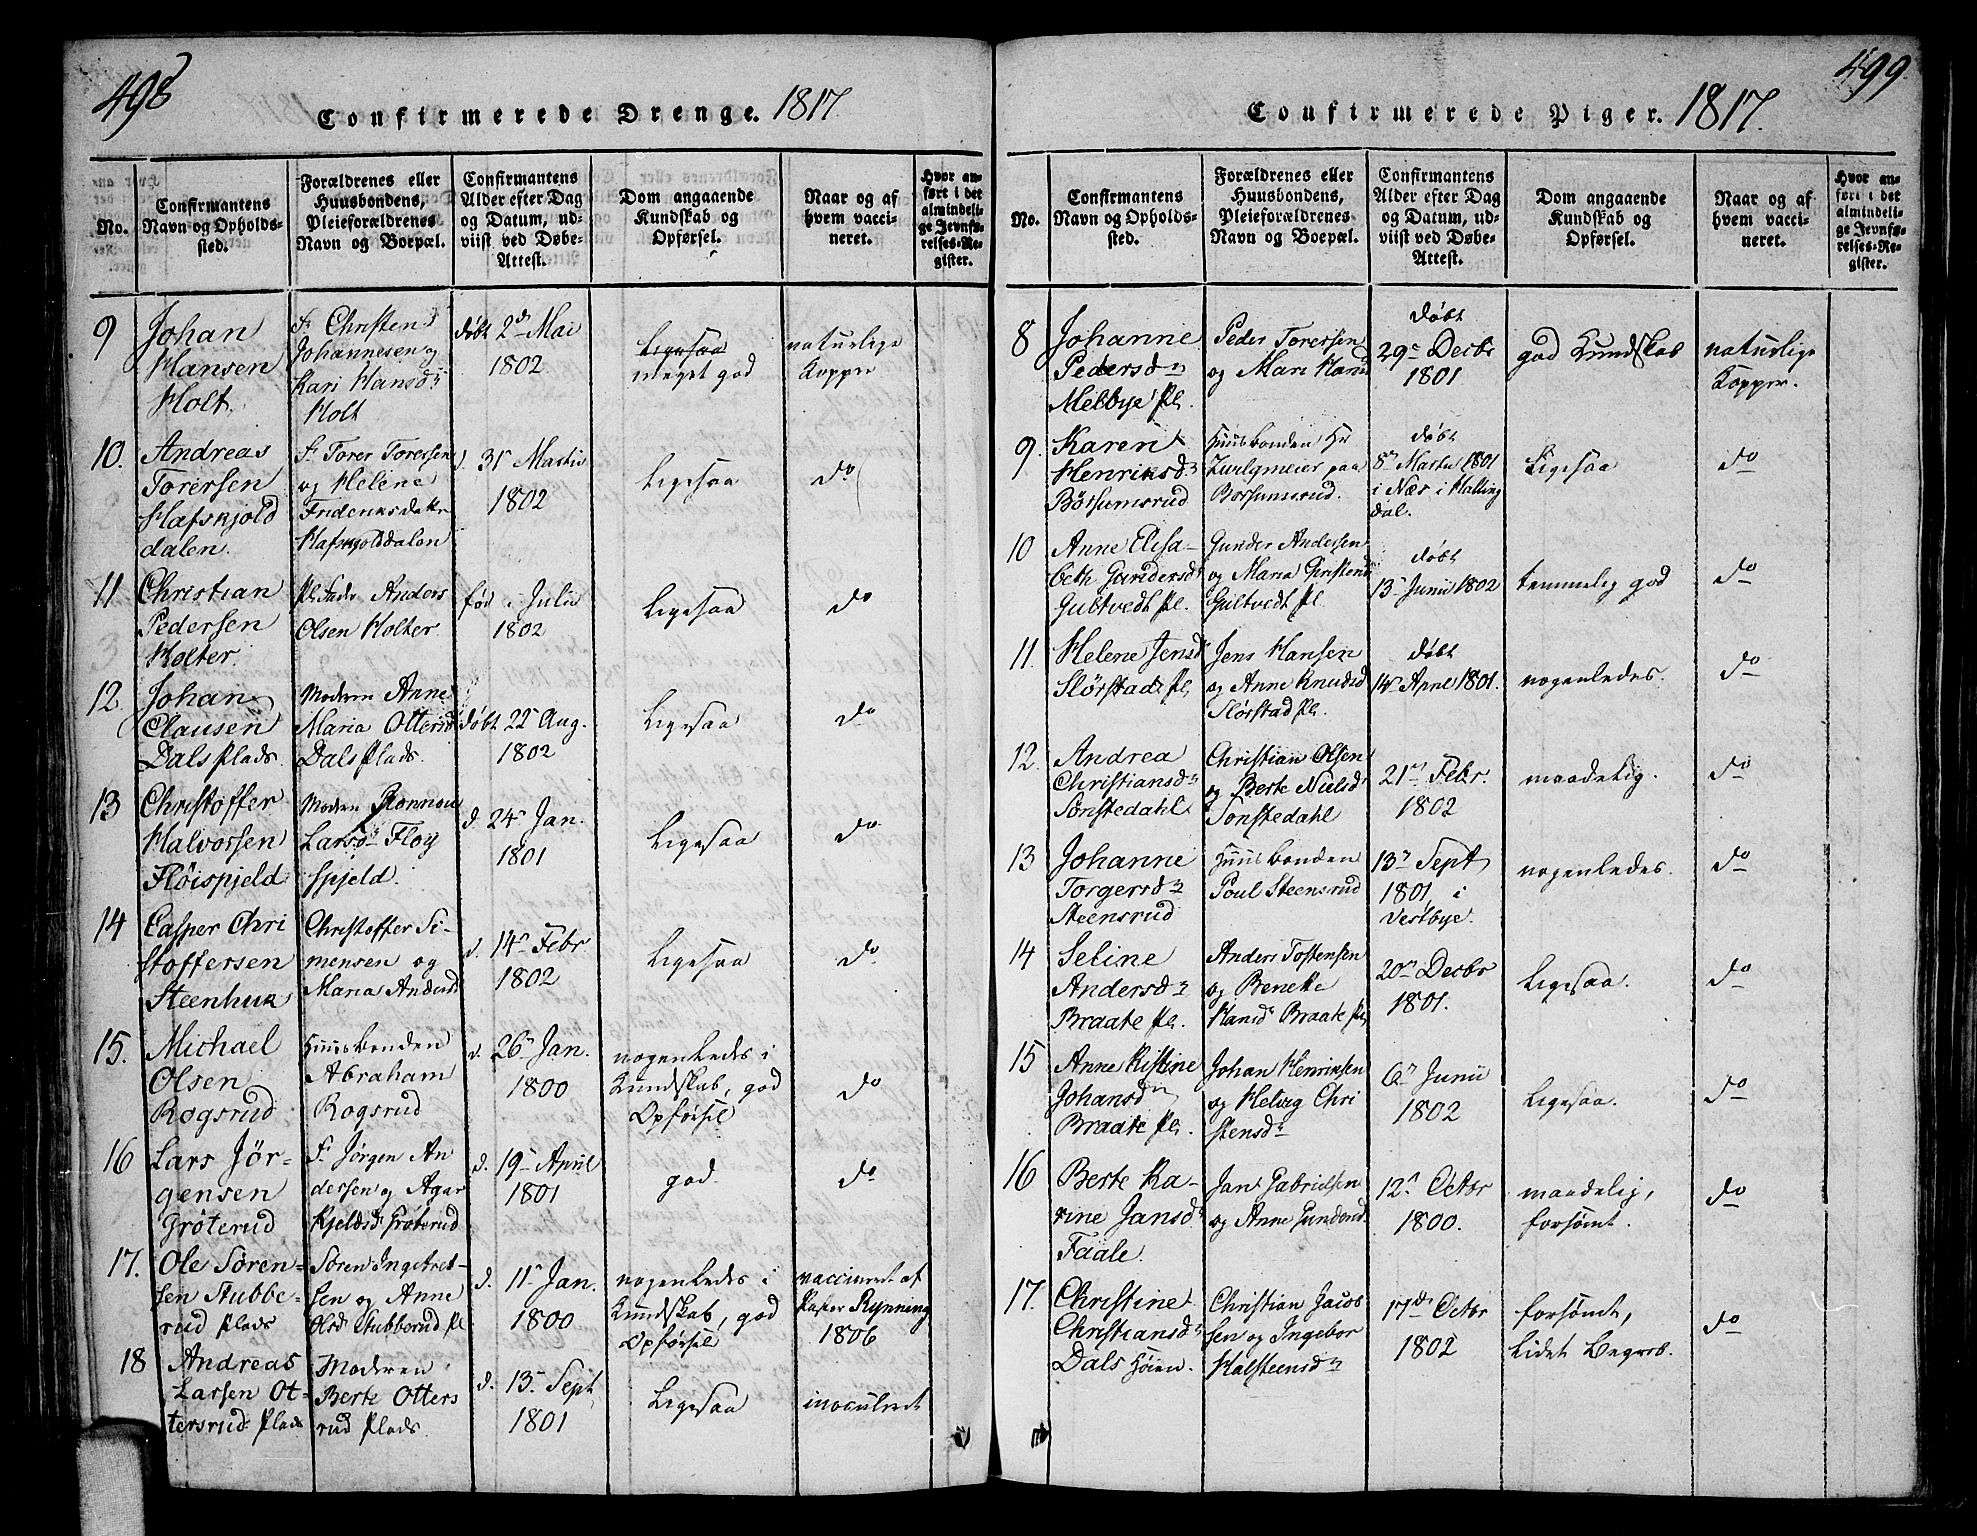 498
Confirmerede Drenge. 1817.
No.
Confirmantens
Navn og Opholds-
sted.
Forældrenes eller
Huusbondens,
Pleieforældrenes
Navn og Boepæl.
Confirmantens
Alder efter Dag
og Datum, ud-
viist ved Døbe-
Attest.
Dom angaaende
Kundskab og
Opførsel.
Naar og af
hvem vacci-
neret.
Hvor an-
ført i det
almindeli-
ge Jevnfø-
relses-Re-
gister.
9
Johan
Hansen
Holt.
F. Christen
Johannesen og
Kari Hansd
Holt
døbt 2d Mai
1802
Ligesaa
meget god
naturlige
Kopper
10.
Andreas
Torersen
Hafskjold
dalen.
F. Torer Torersen
og Helene
Hafskjolddalen
d. 31 Martii
1802
Ligesaa
do
11
Christian
Pedersen
Holter.
Pl. Fader Anders
Olsen Holter.
fød i Julii
1802
Ligesaa
do
12.
Johan
Clausen
Dals Plads.
Moderen Anne
Maria Ottersd
Dals Plads.
døbt 22 Aug.
1802
Ligesaa
do
13
Christoffer
Halvorsen
Fløispjeld
Moderen Ronnou
Larsdn Floy
spjeld.
d. 24 Jan.
1801
Ligesaa
do
14
Casper Chri
stoffersen
Steenhuk
Christoffer Si-
mensen og
Maria Andersd
d. 14 Febr
1802
Ligesaa
do
15.
Michael
Olsen
Rogsrud
Huusbonden
Abraham
Rogsrud
d. 26 Jan.
1800
nogenledes i
Kundskab, god
Opførsel
do
16
Lars Jör-
gensen
Gröterud
F. Jørgen An
dersen og Agar
Kjeldsd Gröterud
d. 19 April
1801
god.
do
17.
Ole Sören-
sen Stubbe-
rud Plads
Sören Ingebret-
sen og Anne
Olsd Stubberud Pl
d. 11 Jan.
1800
nogenledes i
Kundskab, god
Opførsel
vaccineret af
Pastor Rynning
1806
18
Andreas
Larsen Ot-
tersrud Plads
Moderen
Berte Otters
rud Plads.
d. 13 Sept
1801
Ligesaa
inoculeret
499
Confirmerede Piger. 1817.
No.
Confirmantens
Navn og Opholds-
sted.
Forældrenes eller
Huusbondens,
Pleieforældrenes
Navn og Boepæl.
Confirmantens
Alder efter Dag
og Datum, ud-
viist ved Døbe-
Attest.
Dom angaaende
Kundskab og
Opførsel.
Naar og af
hvem vacci-
neret.
Hvor an-
ført i det
almindeli-
ge Jevnfø-
relses-Re-
gister.
8
Johanne
Pedersdn
Melbye Pl.
Peder Torersen
og Mari Hansd
døbt
29 Decbr
1801
god Kundskab
naturlige
Kopper.
9.
Karen
Henriksdn
Börsumsrud
Huusbonden Hr
paa
Borsumsrud.
døbt
8 Martii 1801
i Næs i Halling
dal.
Ligesaa
do
10
Anne Elisa-
beth Gundersdn
Gultvedt Pl.
Gunder Andersen
og Maria Christensd
Gultvedt Pl.
døbt
13 Junii 1802
temmelig god
do
11.
Helene Jensd
Slörstad Pl.
Jens Hansen
og Anne Knudsd
Slörstad Pl.
døbt
14 April 1801.
nogenledes.
do
12.
Andrea
Christiansdn
Sönstedahl
Christian Olsen
og Berte Nielsd
Sonstedahl
21 Febr.
1802
maadelig.
do
13
Johanne
Torgersdn
Steensrud
Huusbonden
Poul Steensrud
13 Sept
1801 i
Vestbye.
nogenledes.
do
14
Seline
Andersdn
Braate Pl.
Anders Tostensen
og Benette
Hansd Braate Pl
20 Decbr
1801.
Ligesaa.
do
15
Anne Kistine
Johansdn
Braate Pl.
Johan Henriksen
og Helvig Chri
stensdn
6 Junii
1802
Ligesaa.
do
16
Berte Ka-
rine Jansdn
Faale
Jan Gabrielsen
og Anne Gundersd
12 Octbr
1800.
maadelig,
forsømt.
do
17.
Christine
Christiansdn
Dals Höien.
Christian Jacob
sen og Ingebor
Halsteensdn
17d Octbr
1802
forsømt,
lidet Begreb.
do